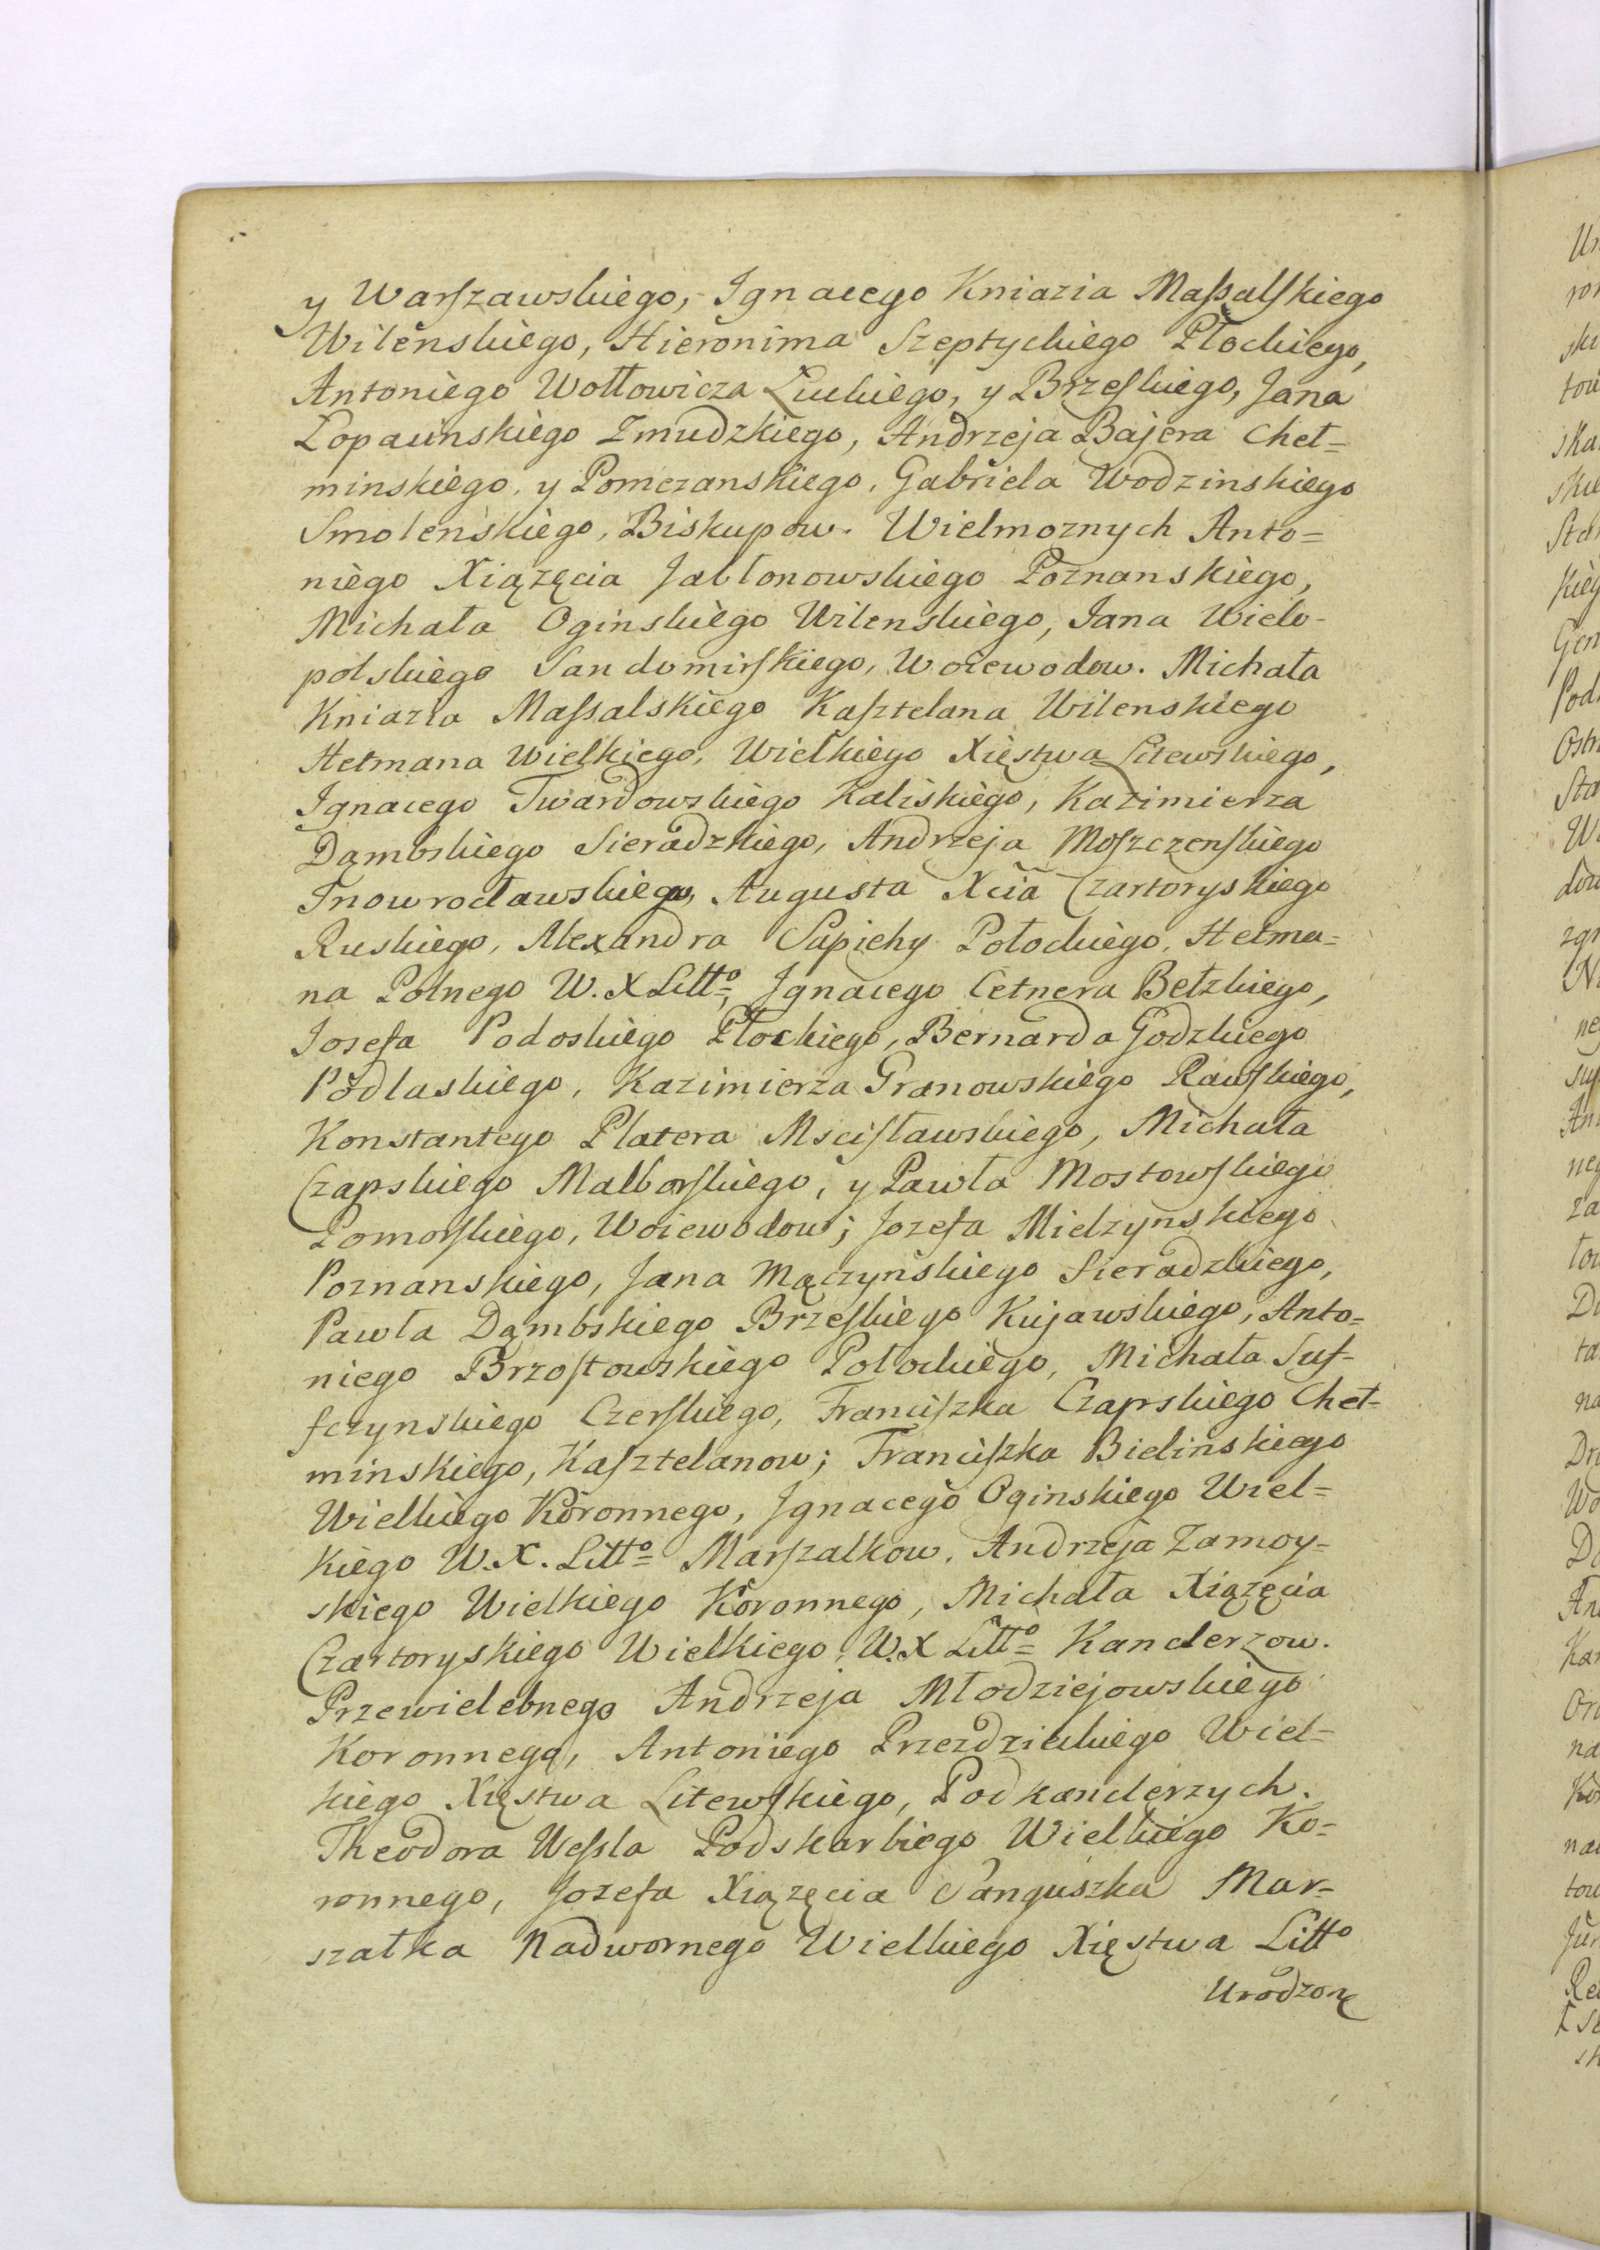 y Warſzawskiego, Ignacego Kniazia Maſsalſkiego
Wilenskiego, Hieronima Szeptyckiego Płockiego,
Antoniego Wołłowicza Łuckiego, y Brzeſkiego, Jana
Łopacinskiego Zmudzkiego, Andrzeja Bajera Cheł=
minskiego, y Pomezanskiego, Gabriela Wodzinskiego
Smolenskiego, Biskupow. Wielmoznych Anto=
niego Xiązęcia Jabłonowskiego Poznanskiego,
Michała Oginskiego Wilenskiego, Jana Wielo-
polskiego Sandomirſkiego, Woiewodow. Michała
Kniazia Maſsalskiego Kaſztelana Wilenskiego
Hetmana Wielkiego, Wielkiego Xięstwa Litewskiego,
Ignacego Twardowskiego Kaliskiego, Kazimierza
Dąmbskiego Sieradzkiego, Andrzeja Moſzczenſkiego
Inowrocławskiego, Augusta Xcia Czartoryskiego
Ruskiego, Alexandra Sapiehy Połockiego, Hetma=
na Polnego W. X Litto=, Ignacego Cetnera Bełzkiego,
Josefa Podoskiego Płockiego, Bernarda Godzkiego
Podlaskiego, Kazimierza Granowskiego Rawſkiego,
Konstantego Platera Mſciſławskiego, Michała
Czapskiego Malborſkiego, y Pawła Mostowſkiego
Pomorſkiego, Woiewodow; Jozefa Mielzynskiego
Poznanskiego, Jana Mączyńskiego Sieradzkiego,
Pawła Dąmbskiego Brzeſkiego Kujawskiego, Anto=
niego Brzoſtowskiego Połockiego, Michała Suf-
fczynskiego Czerſkiego, Franciſzka Czapskiego Cheł-
minskiego, Kaſztelanow; Franciſzka Bielinskiego
Wielkiego Koronnego, Ignacego Oginskiego Wiel=
kiego W. X. Litto= Marſzalkow. Andrzeja Zamoy=
skiego Wielkiego Koronnego, Michała Xiązęcia
Czartoryskiego Wielkiego W. X Litto= Kanclerzow.
Przewielebnego Andrzeja Młodziejowskiego
Koronnego, Antoniego Przezdzieckiego Wiel=
kiego Xięstwa Litewſkiego, Podkanclerzych.
Theodora Weſsla Podskarbiego Wielkiego Ko=
ronnego, Jozefa Xiązęcia Sanguszka Mar=
szałka Nadwornego Wielkiego Xięstwa Litto
Urodzone